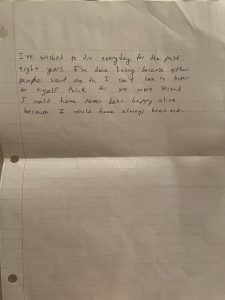 I've wished to die everyday for the past
eight years. I'm done living because other
people want me to I can't bear to listen
to myself think for one more second
I would have never been happy alive
because I would have always been me.